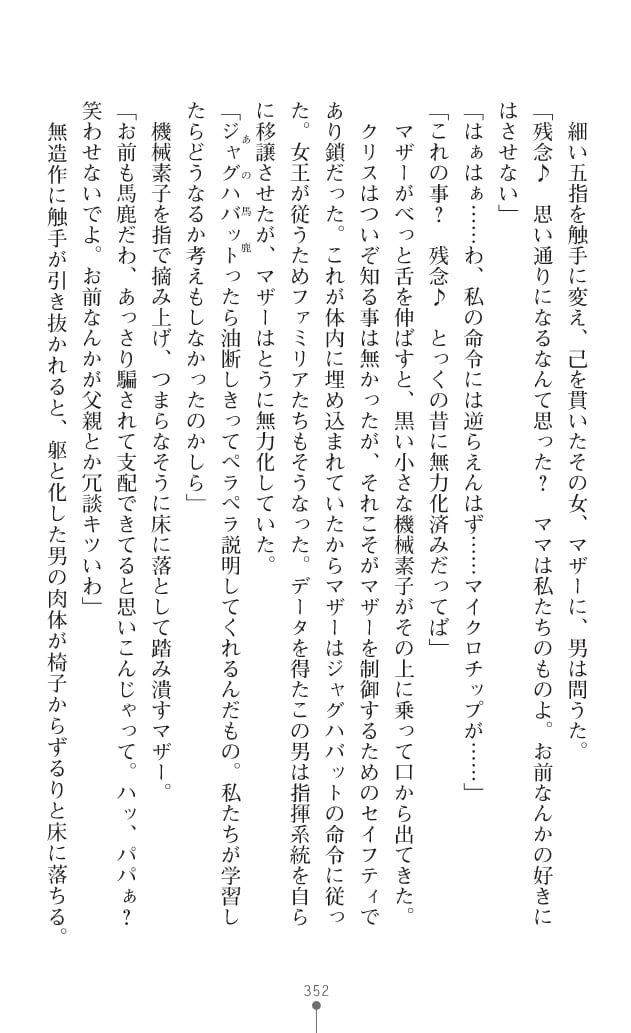 細い五指を触手に変え、己を貫いたその女、マザーに、男は問うた。
「残念♪　思い通りになるなんて思った？　ママは私たちのものよ。お前なんかの好きに
はさせない」
「はぁはぁ……わ、私の命令には逆らえんはず……マイクロチップが……」
「これの事？　残念♪　とっくの昔に無力化済みだってば」
マザーがべっと舌を伸ばすと、黒い小さな機械素子がその上に乗って口から出てきた。
クリスはついぞ知る事は無かったが、それこそがマザーを制御するためのセイフティで
あり鎖だった。これが体内に埋め込まれていたからマザーはジャグハバットの命令に従っ
た。女王が従うためファミリアたちもそうなった。データを得たこの男は指揮系統を自ら
に移譲させたが、マザーはとうに無力化していた。
「ジャグハバットったら油断しきってペラペラ説明してくれるんだもの。私たちが学習し
あの馬鹿
たらどうなるか考えもしなかったのかしら」
機械素子を指で摘み上げ、つまらなそうに床に落として踏み潰すマザー。
「お前も馬鹿だわ、あっさり騙されて支配できてると思いこんじゃって。ハッ、パパぁ？
笑わせないでよ。お前なんかが父親とか冗談キツいわ」
無造作に触手が引き抜かれると、躯と化した男の肉体が椅子からずるりと床に落ちる。
352